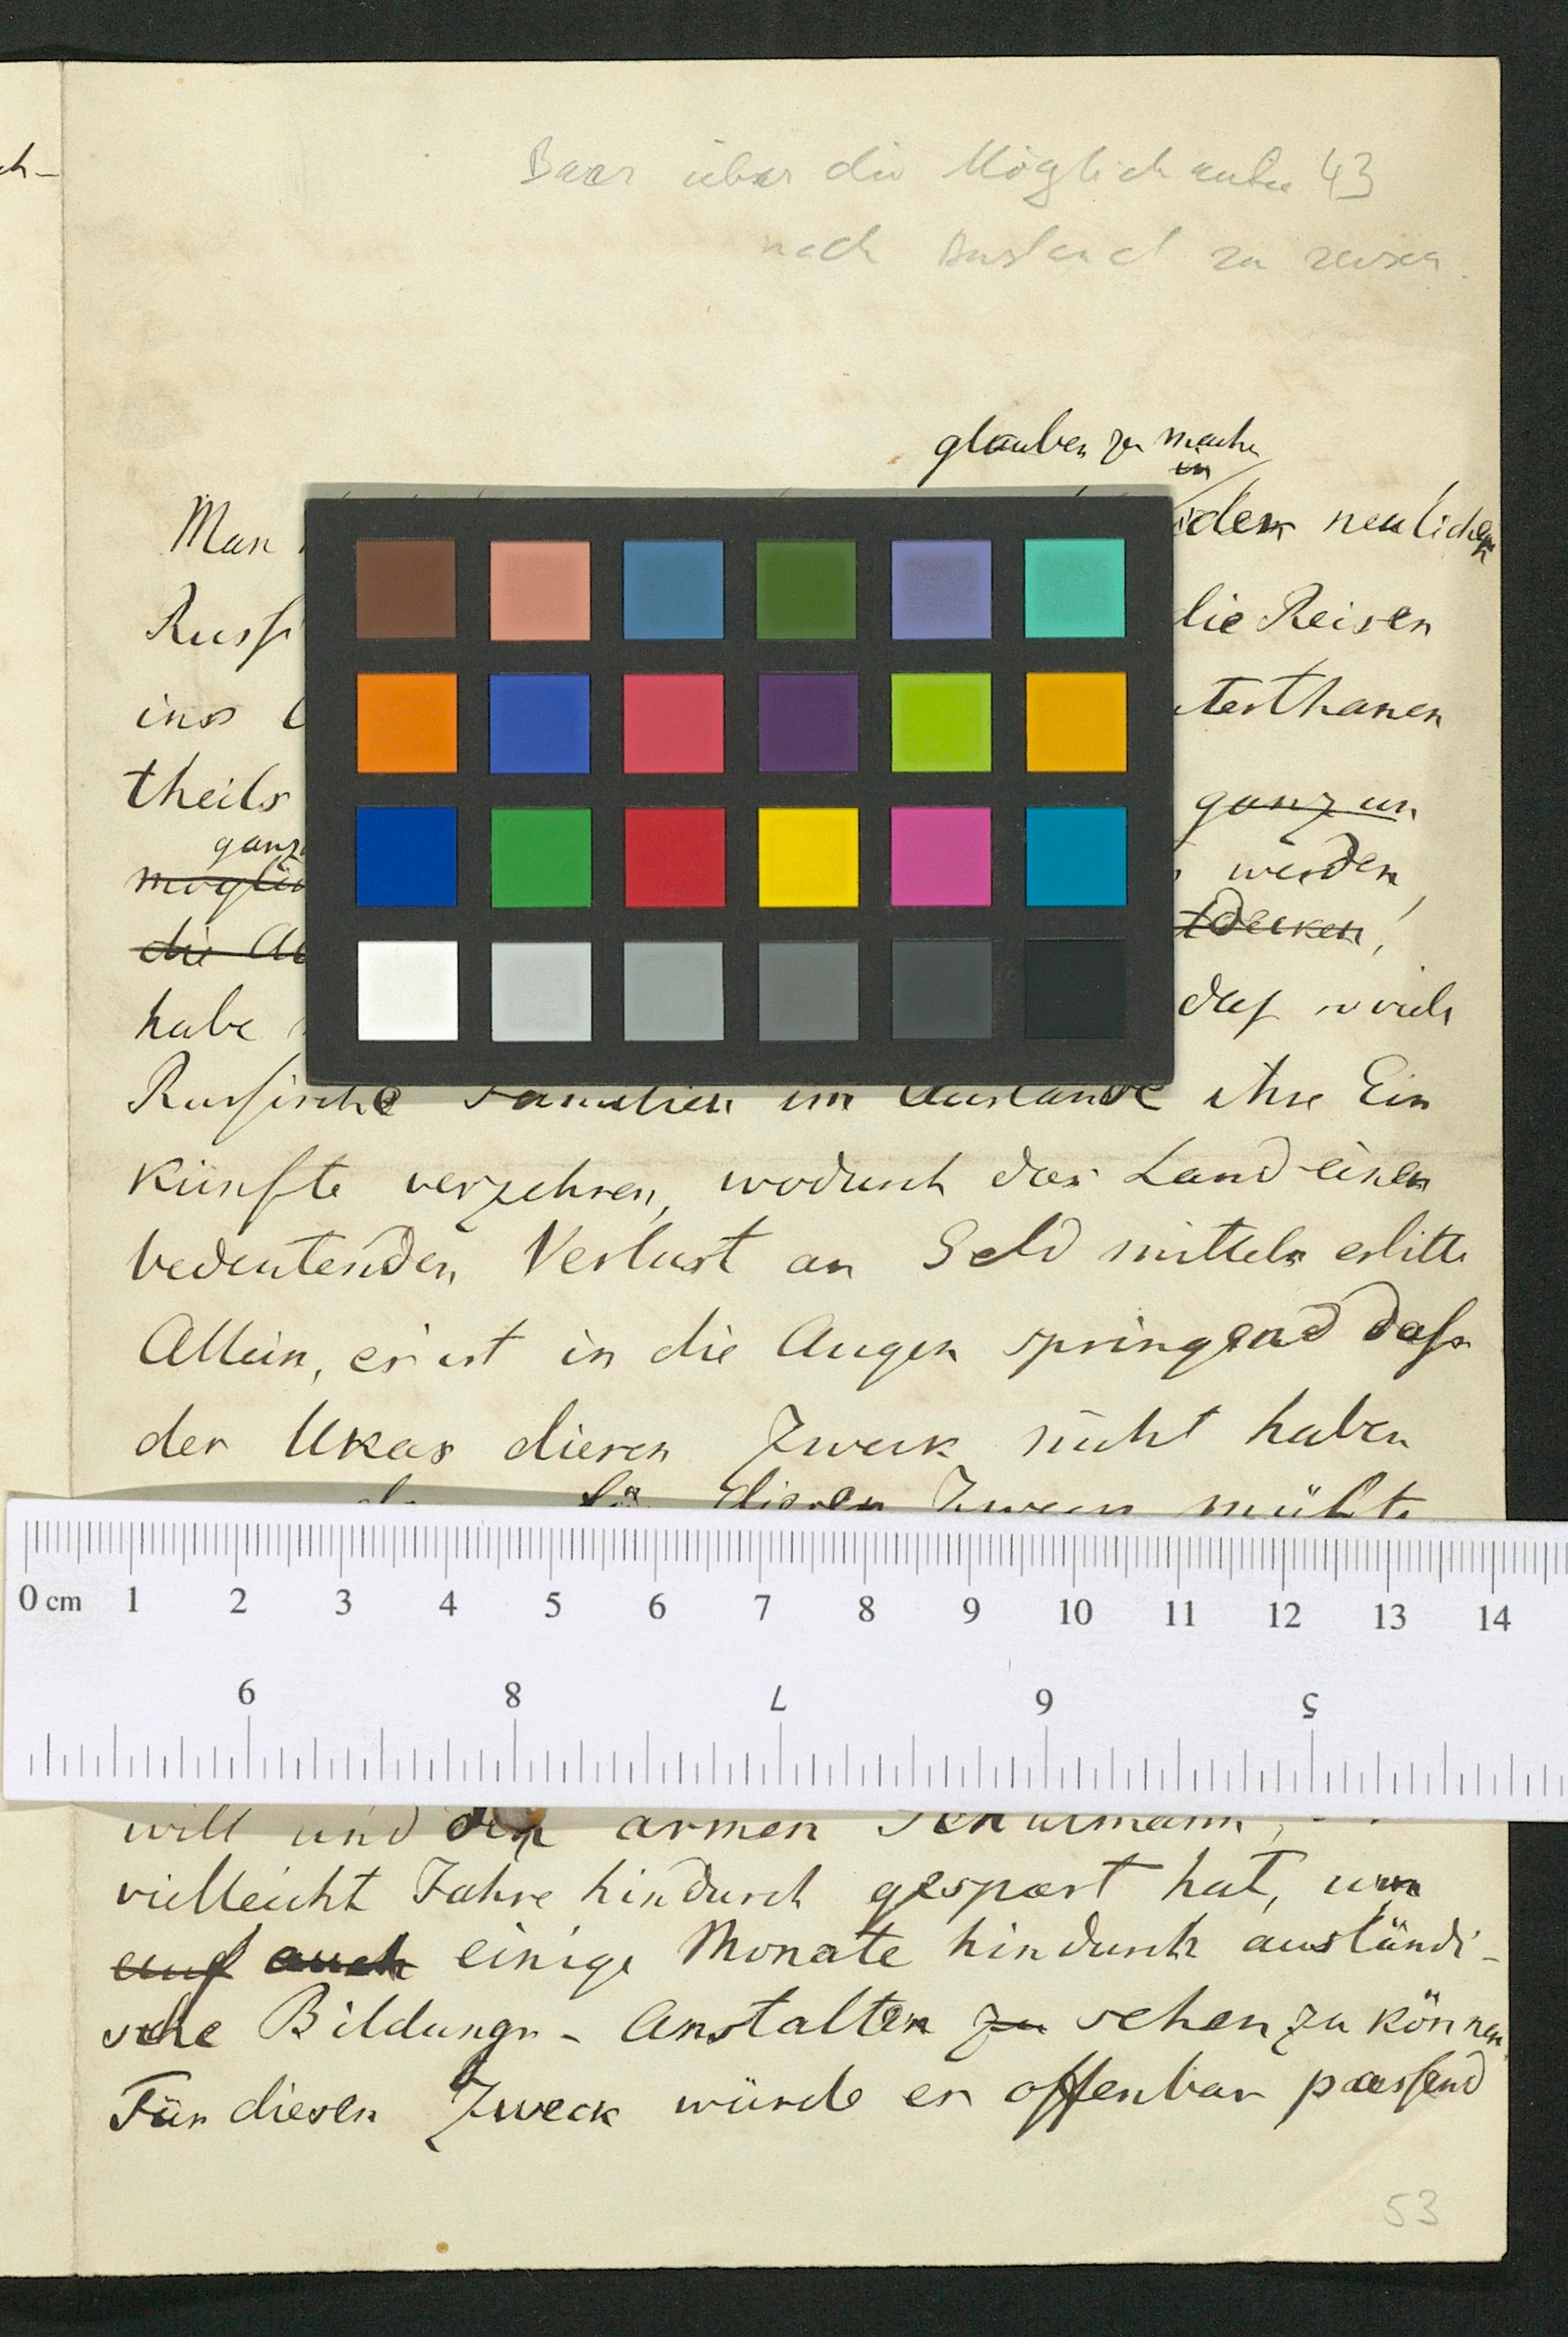 Baer über die Möglichkeiten 43
nach Ausland zu reisen.
glauben zu machen
in
Man dem neulichen
Russi die Reisen
ins terthanen
theils ganz un
ganz
möglich werden,
die tdecken,
habe daß so viele
Russische Familien im Auslande ihre Ein
künfte verzehren, wodurch das Land einen
bedeutenden Verlust an Geld mitteln erlitte
Allein, es ist in die Augen springend dass
der Ukas diesen Zweck nicht haben
diesen Zweck müßte
0 cm 1 2 3 4 5 6 7 8 9 10 11 12 13 14
9 8 7 6 5
will und den armen Schulmann,
vielleicht Jahre hindurch gespart hat, um
auf auch einige Monate hindurch ausländi-
sche Bildungs-Anstalten zu sehen zu können.
Für diesen Zweck würde es offenbar passend
53